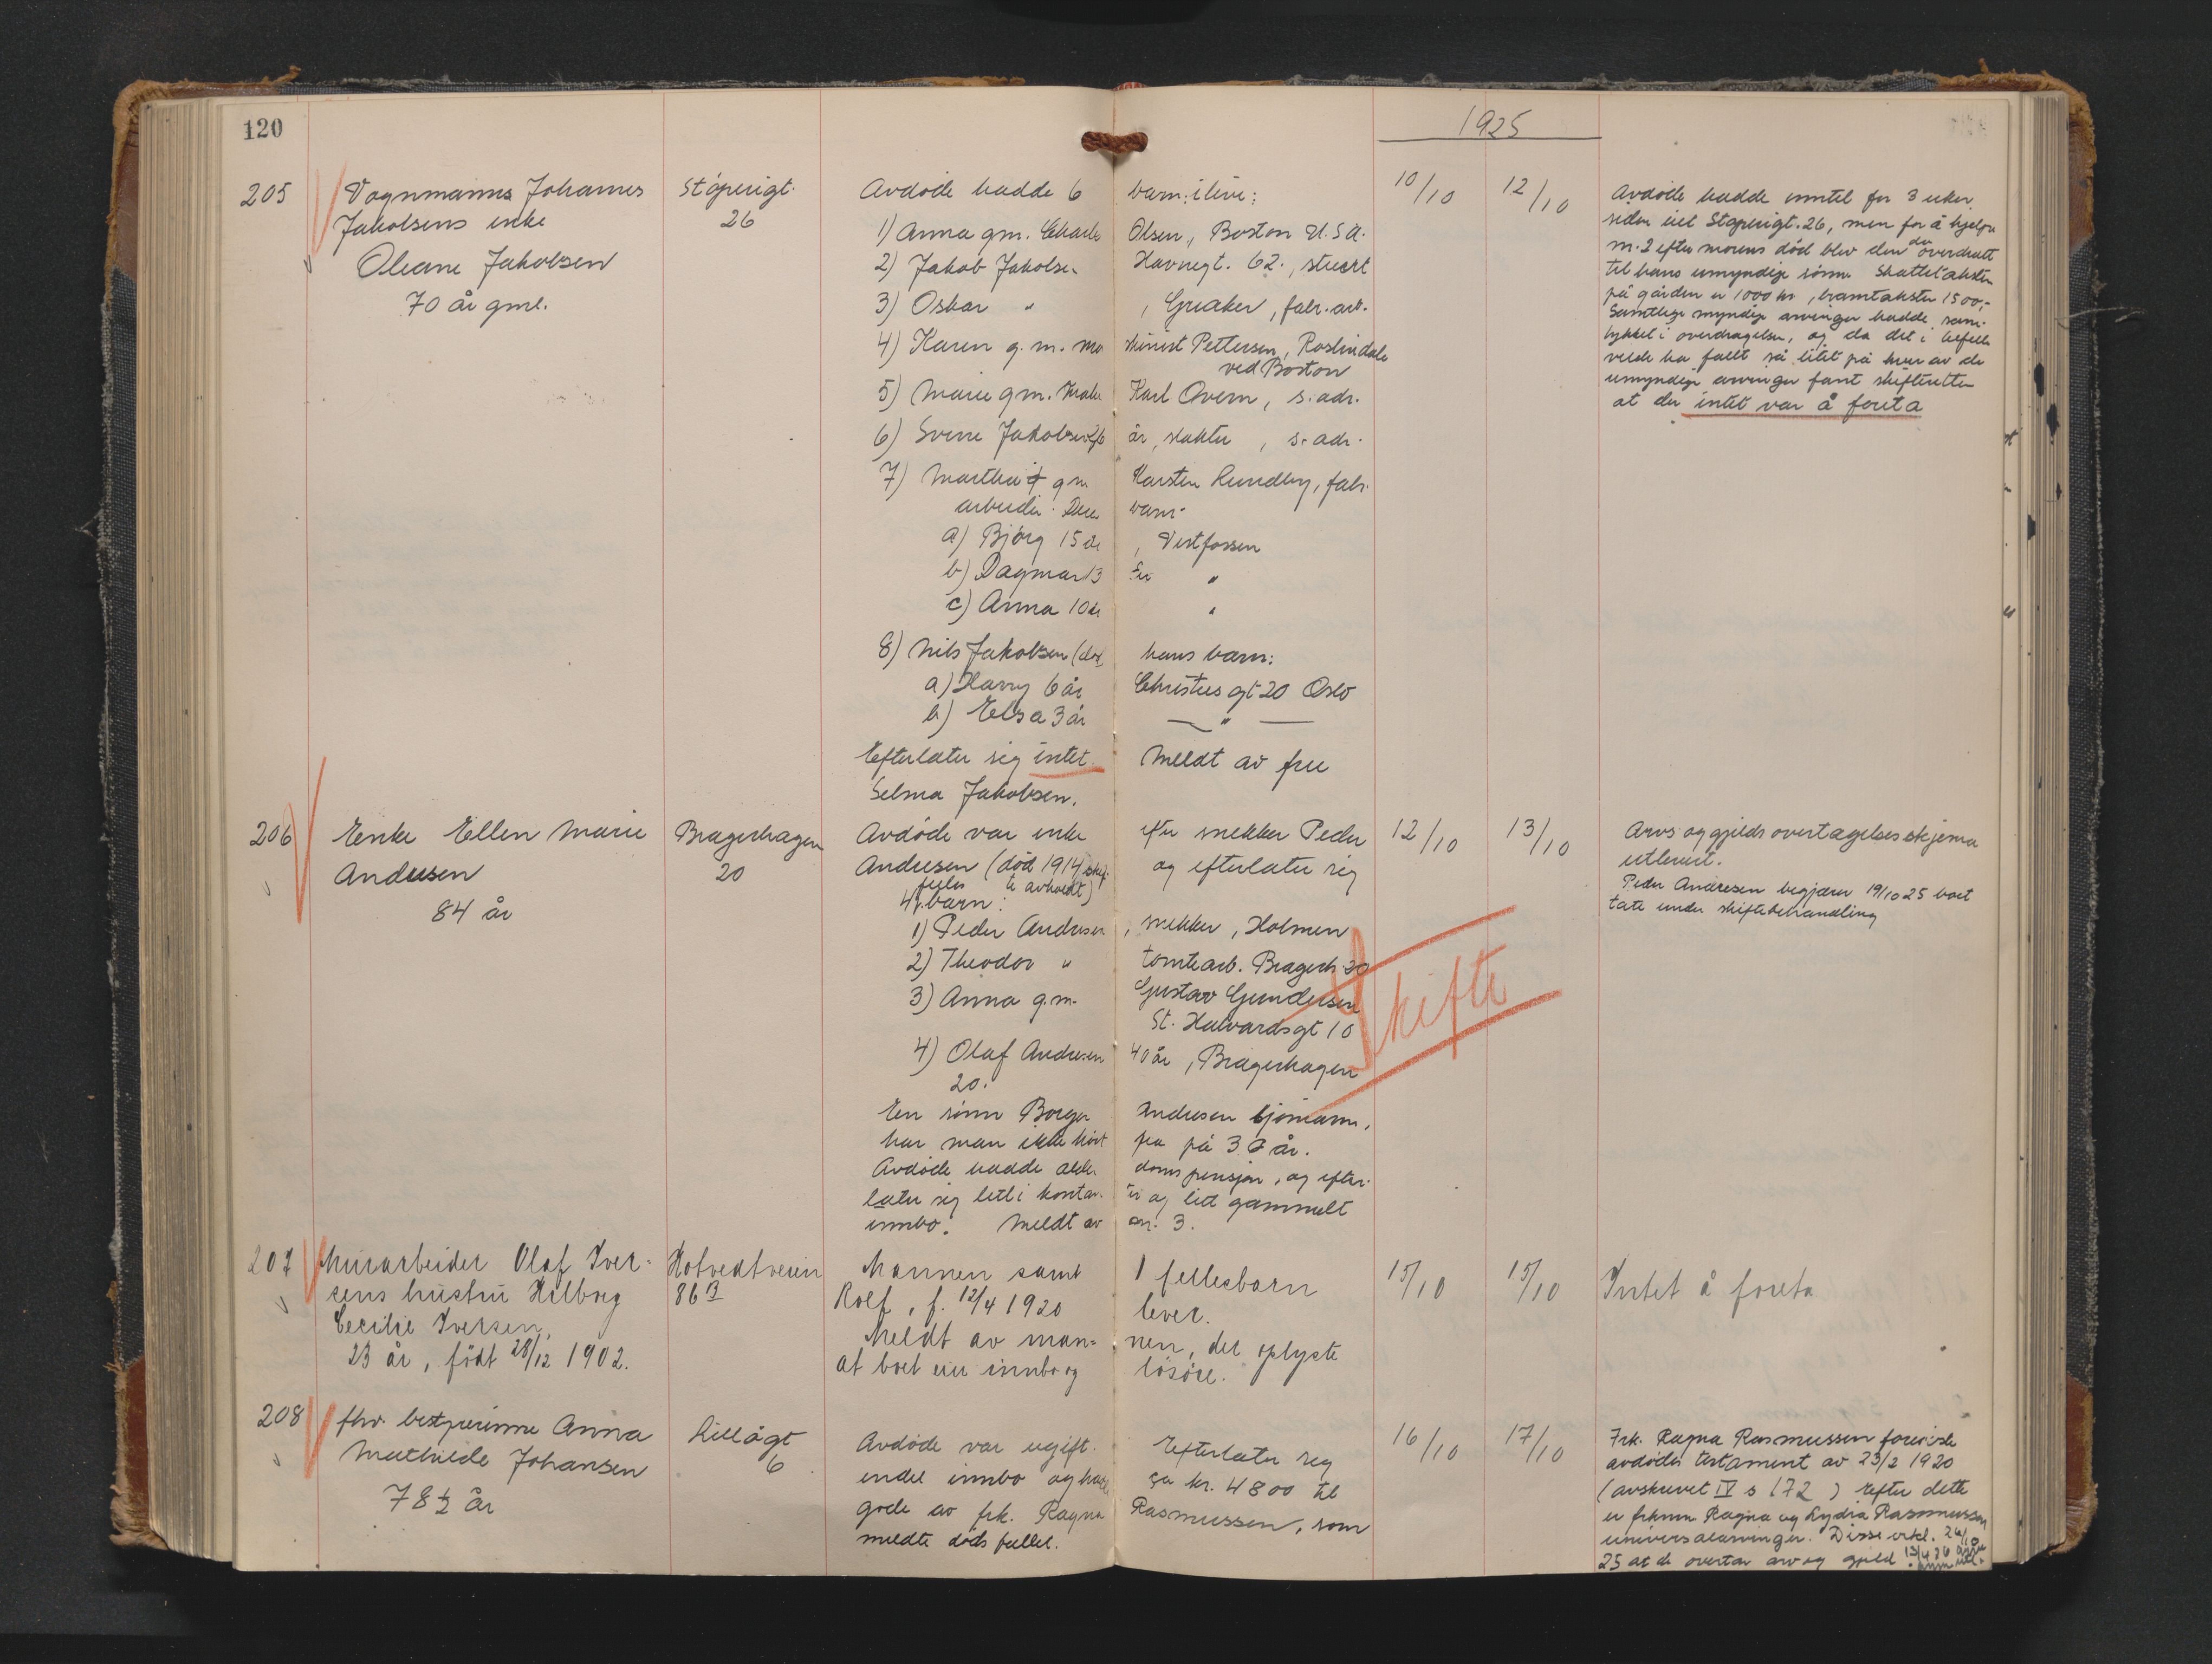 120
1925
205
Vognmanns Johannes
Jakobsens enke
Oleane Jakobsen
70 år gml.
Støperigt.
26
Avdøde hadde 6 barn i live:
1) Anna gm. Charles Olsen, Boston U.S.A.
2) Jakob Jakobsen Havnegt. 62., stuert
3) Oskar " , Greaker, fabr. arb.
4) Karen g. m. maskinist Pettersen, Roslindale
ved Boston
5) Marie gm. Karl Overn, s. adr.
6) Sverre Jakobsen 26 år, slakter, s. adr.
7) Marthe † gm Karsten Lundby, fabr.
arbeider. Deres barn:
a) Bjørg 15 år, Vestfossen
b) Dagmar 13 år "
c) Anna 10 år "
8) Nils Jakobsen (død hans barn:
a) Harry 6 år Christies gt 20 Oslo
b) Elsa 3 år — " —
Efterlater sig intet. Meldt av fru
Selma Jakobsen.
10/10
12/10
Avdøde hadde inntil for 3 uker
siden eiet Støperigt. 26, men for å hjelpe
nr. 2 efter morens død blev den da overdratt
til hans umyndige sønn. Skattetaksten
på gården er 1000 kr, branntakster 1500,-
Samtlige myndige arvinger hadde sam-
tykket i overdragelsen, og da det i tilfelle
vilde ha falt så litet på hver av de
umyndige arvinger fant skifteretten
at der intet var å foreta
206
Enke Ellen Marie
Andresen
84 år
Bragerhagen
20
Avdøde var enke efter snekker Peder
Andresen (død 1914 skif-
te avholdt) og efterlater sig
4 felles barn:
1) Peder Andresen, snekker, Holmen
2) Theodor " tomtearb. Bragerh. 20
3) Anna g.m. Gustav Gundersen
St. Halvardsgt 10
4) Olaf Andresen 40 år, Bragerhagen
20.
En sønn Borger Andresen sjømann,
har man ikke hørt fra på 30 år.
Avdøde hadde alderdoms pensjon, og efter-
later sig litt i kontanter og litt gammelt
innbo. Meldt av nr. 3.
12/10
13/10
Skifte
Arvs og gjelds overtagelsesskjema
utlevert.
Peder Andresen begjærer 19/10 25 boet
tatt under skiftebehandling
207
Murarbeider Olaf Iver-
sens hustru Hilborg
Cecilie Iversen,
23 år, født 28/12 1902.
Hotvedtveien
86 B
Mannen samt 1 fellesbarn
Rolf, f. 12/4 1920 lever.
Meldt av man= nen, det oplyste
at boet eier innbo og løsøre.
15/10
15/10
Intet å foreta
208
fhv. bestyrerinne Anna
Mathilde Johansen
78 ½ år
Lilleågt
6
Avdøde var ugift. Efterlater sig
endel innbo og havde ca kr. 4800 til
gode av frk. Ragna Rasmussen, som
meldte dødsfallet.
16/10
17/10
Frk. Ragna Rasmussen foreviste
avdødes testament av 23/2 1920
(avskrevet IV s 172) Efter dette
er frknn Ragna og Lydia Rasmussen
universalarvinger. Disse erkl. 26/10
25 at de overtar arv og gjeld 13/4 26